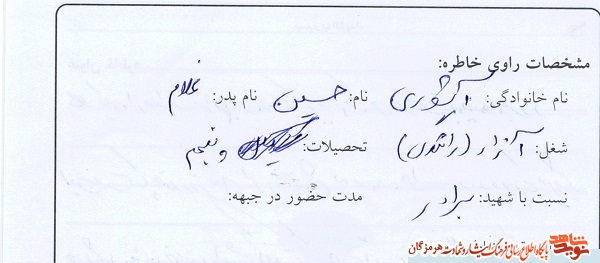 مشخصات راوی خاطره:
نام خانوادگی: آشوری نام: حسین نام پدر: غلام
شغل: آزاد (رانندگی) تحصیلات: پنجم
نسبت با شهید: برادر مدت حضور در جبهه:
نوید شاهد پایگاه اطلاع رسانی فرهنگ ایثار و شهادت هرمزگان